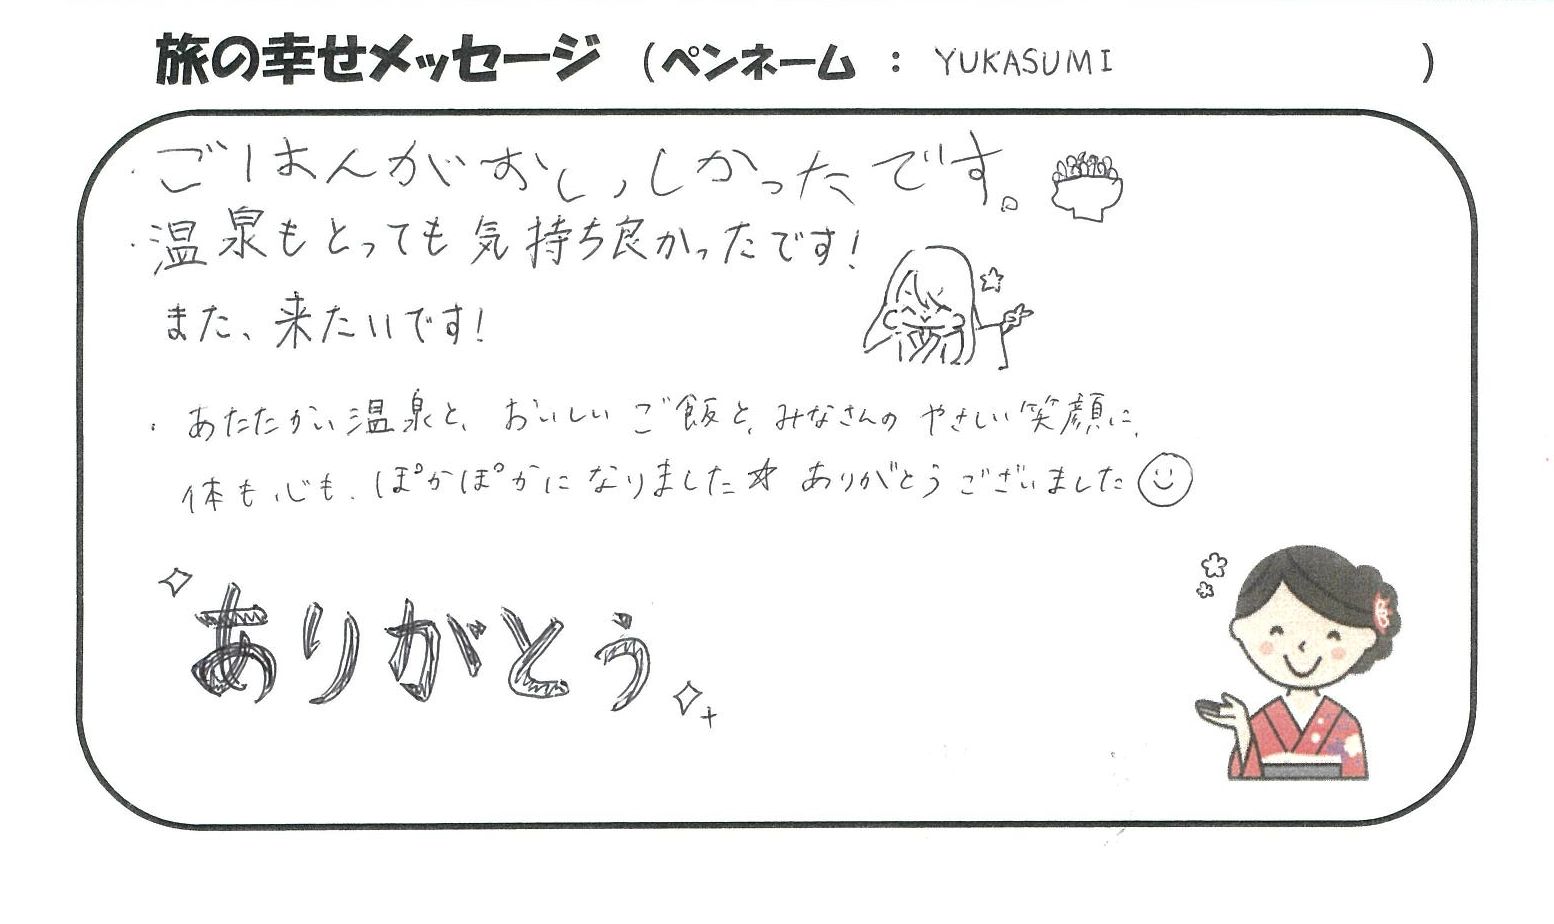 旅の幸せメッセージ (ペンネーム : YUKASUMI )
・ごはんがおいしかったです。
・温泉もとっても気持ち良かったです!
また、来たいです!
・あたたかい温泉と、おいしいご飯と、みなさんのやさしい笑顔に、
体も心も、ぽかぽかになりました☆ ありがとうございました
ありがとう